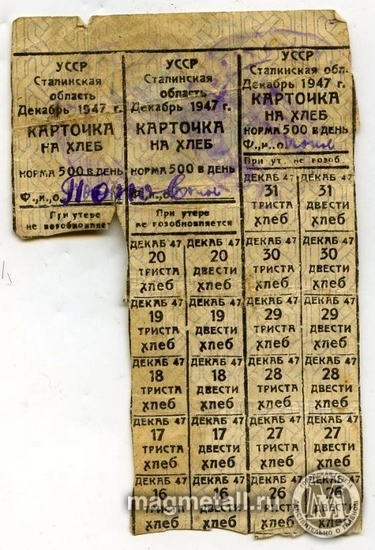 УССР
Сталинская
область
Декабрь 1947 г.
КАРТОЧКА
НА ХЛЕБ
НОРМА 500 В ДЕНЬ
Ф.,и.,о.
При утере
не возобновляется
УССР
Сталинская
область
Декабрь 1947 г.
КАРТОЧКА
НА ХЛЕБ
НОРМА 500 В ДЕНЬ
При утере
не возобновляется
УССР
Сталинская обл.
Декабрь 1947 г.
КАРТОЧКА
НА ХЛЕБ
НОРМА 500 В ДЕНЬ
Ф.,и.,о.
При ут. не возоб.
ДЕКАБ 47 ДЕКАБ 47
31 31
ТРИСТА ДВЕСТИ
хлеб хлеб
ДЕКАБ 47 ДЕКАБ 47 ДЕКАБ 47 ДЕКАБ 47
20 20 30 30
ТРИСТА ДВЕСТИ ТРИСТА ДВЕСТИ
хлеб хлеб хлеб хлеб
ДЕКАБ 47 ДЕКАБ 47 ДЕКАБ 47 ДЕКАБ 47
19 19 29 29
ТРИСТА ДВЕСТИ ТРИСТА ДВЕСТИ
хлеб хлеб хлеб хлеб
ДЕКАБ 47 ДЕКАБ 47 ДЕКАБ 47 ДЕКАБ 47
18 18 28 28
ТРИСТА ДВЕСТИ ТРИСТА ДВЕСТИ
хлеб хлеб хлеб хлеб
ДЕКАБ 47 ДЕКАБ 47 ДЕКАБ 47 ДЕКАБ 47
17 17 27 27
ТРИСТА ДВЕСТИ ТРИСТА ДВЕСТИ
хлеб хлеб хлеб хлеб
ДЕКАБ 47 ДЕКАБ 47 ДЕКАБ 47 ДЕКАБ 47
16 16 26 26
ТРИСТА ДВЕСТИ ТРИСТА ДВЕСТИ
хлеб хлеб хлеб хлеб
magmetall.ru